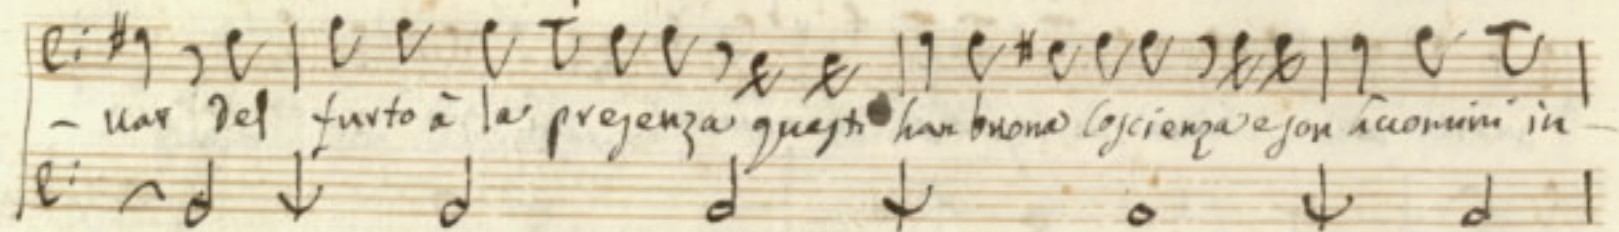 - uar del furto à la presenza questi han buona coscienza e son huomini in -